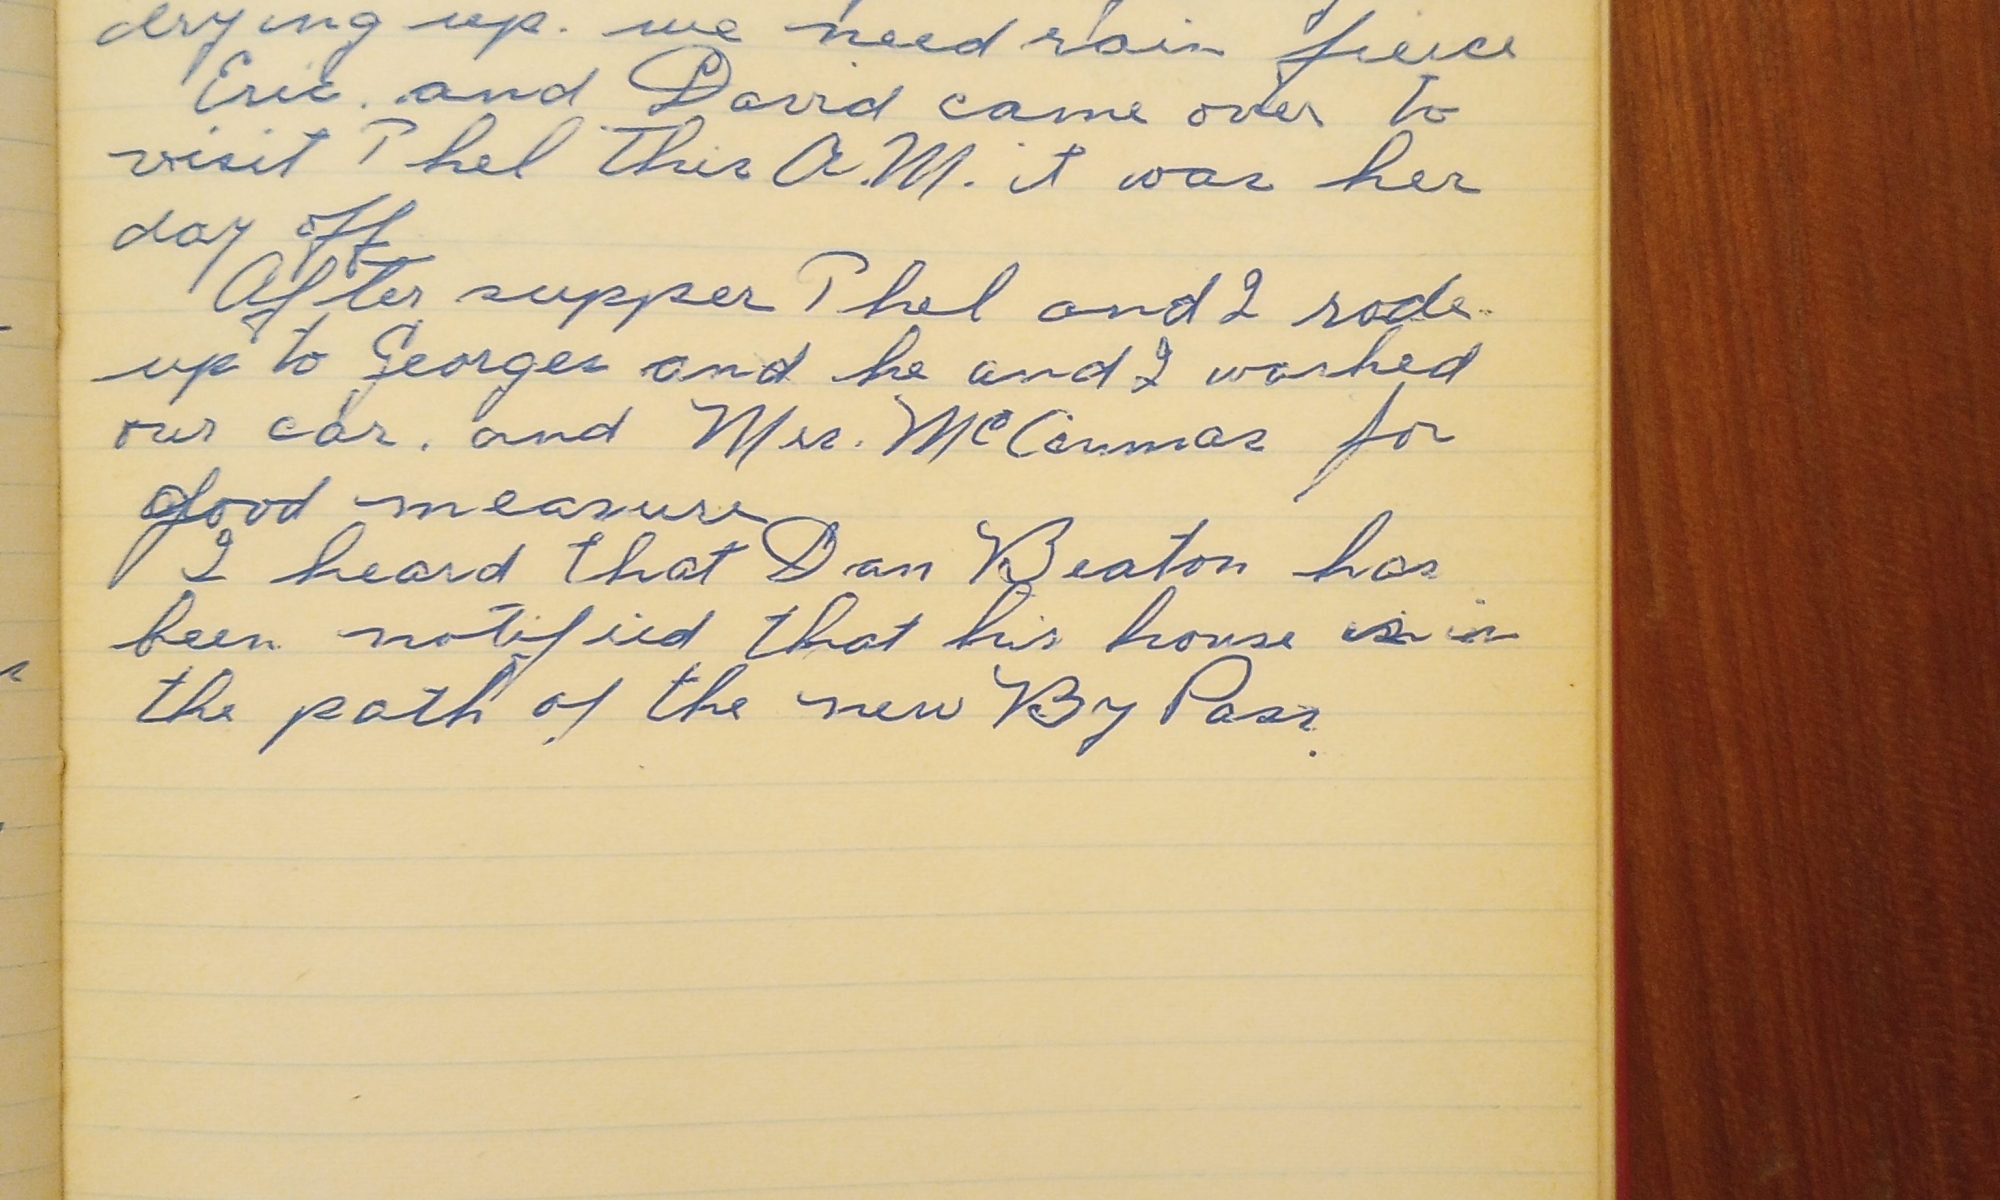 drying up. we need rain fierce
Eric. and David came over to
visit Phel this A.M. it was her
day off
After supper Phel and I rode
up to Georges and he and I washed
our car. and Mrs. for
good measure
I heard that Dan Beaton has
been notified that his house is in
the path of the new By Pass.